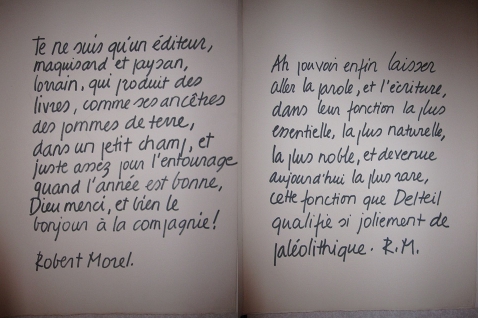 Je ne suis qu'un éditeur,
maquisard et paysan,
lorrain, qui produit des
livres, comme ses ancêtres
des pommes de terre,
dans un petit champ, et
juste assez pour l'entourage
quand l'année est bonne,
Dieu merci, et bien le
bonjour à la compagnie!
Robert Morel.
Ah pouvoir enfin laisser
aller la parole, et l'écriture,
dans leur fonction la plus
essentielle, la plus naturelle,
la plus noble, et devenue
aujourd'hui la plus rare,
cette fonction que Delteil
qualifie si joliement de
paléolithique. R.M.